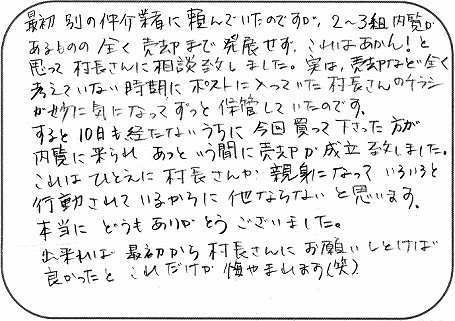 最初 別の仲介業者に頼んでいたのですが、2～3組内覧が
あるものの 全く売却まで発展せず、これはあかん！と
思って村長さんに相談致しました。実は、売却など全く
考えていない時期にポストに入っていた村長さんのチラシ
が妙に気になってずっと保管していたのです。
すると10日も経たないうちに今回買って下さった方が
内覧に来られ あっという間に売却が成立致しました。
これはひとえに村長さんが親身になっていろいろと
行動されているからに他ならないと思います。
本当にどうもありがとうございました。
出来れば最初から村長さんにお願いしとけば
良かったとこれだけが悔やまれます(笑)